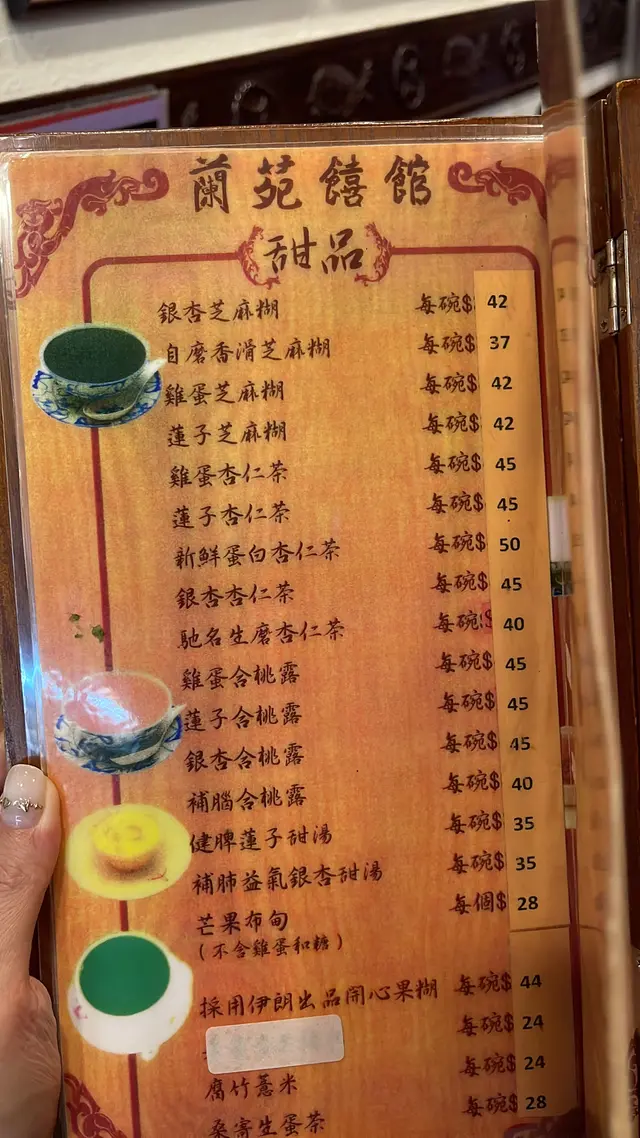 蘭苑饎館
甜品
銀杏芝麻糊 每碗$ 42
自磨香滑芝麻糊 每碗$ 37
雞蛋芝麻糊 每碗$ 42
蓮子芝麻糊 每碗$ 42
雞蛋杏仁茶 每碗$ 45
蓮子杏仁茶 每碗$ 45
新鮮蛋白杏仁茶 每碗$ 50
銀杏杏仁茶 每碗$ 45
馳名生磨杏仁茶 每碗$ 40
雞蛋合桃露 每碗$ 45
蓮子合桃露 每碗$ 45
銀杏合桃露 每碗$ 45
補腦合桃露 每碗$ 40
健脾蓮子甜湯 每碗$ 35
補肺益氣銀杏甜湯 每碗$ 35
芒果布甸 每個$ 28
（不含雞蛋和糖）
採用伊朗出品開心果糊 每碗$ 44
每碗$ 24
腐竹薏米 每碗$ 24
桑寄生蛋茶 每碗$ 28